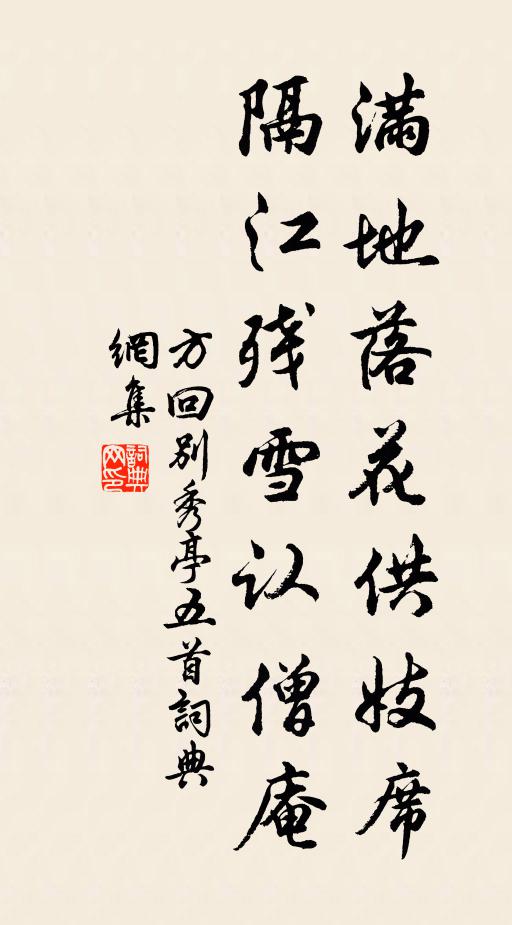 满地落花供妓席
隔江残雪认僧庵
方回别秀亭五首詞典
網集
詞典网印